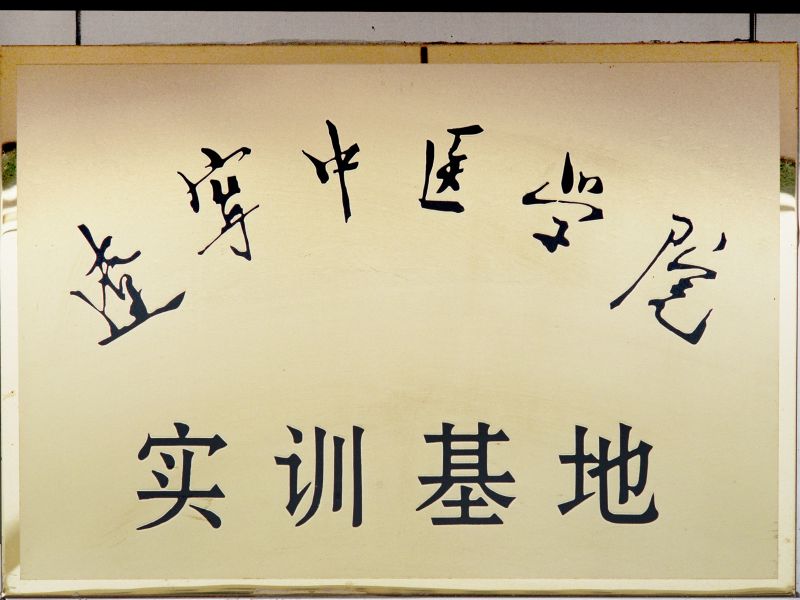 辽宁中医学院
实训基地